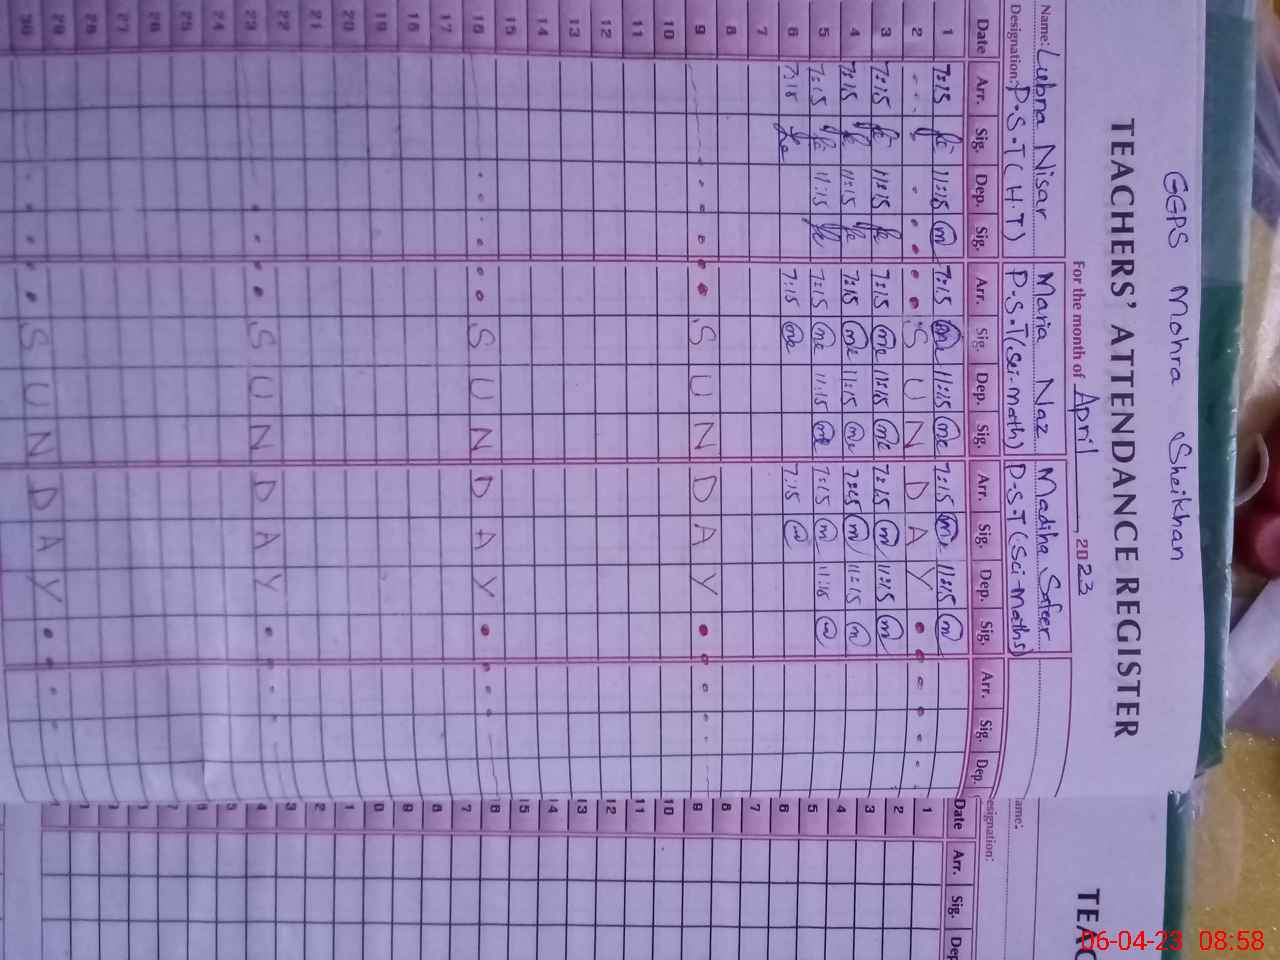 GGPS Mohra Sheikhan
TEACHERS' ATTENDANCE REGISTER
For the month of April 2023
Name: Lubna Nisar Maria Naz Madiha Safeer
Designation: P.S.T(H.T) P.S.T(Sci-Math) P.S.T(Sci-Maths)
Date Arr. Sig. Dep. Sig. Arr. Sig. Dep. Sig. Arr. Sig. Dep. Sig. Arr. Sig. Dep.
1 7:15 11:15 7:15 11:15 7:15 11:15
2 SUNDAY
3 7:15 11:15 7:15 11:15 7:15 11:15
4 7:15 11:15 7:15 11:15 7:15 11:15
5 7:15 11:15 7:15 11:15 7:15 11:15
6 7:15 7:15 7:15
7
8
9 SUNDAY
10
11
12
13
14
15
16 SUNDAY
17
18
19
20
21
22
23 SUNDAY
24
25
26
27
28
29
30 SUNDAY
TEAC
ame:
esignation:
Date Arr. Sig. Dep
1
2
3
4
5
6
7
8
9
10
11
12
13
14
15
16
7
8
9
0
1
2
3
4
5
6
7
06-04-23 08:58